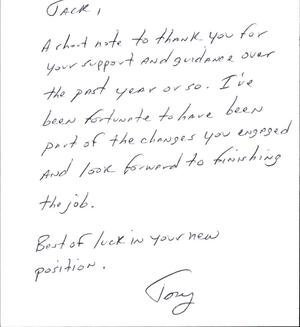 Jack,
A short note to thank you for
your support and guidance over
the past year or so. I've
been fortunate to have been
part of the changes you engaged
and look forward to finishing
the job.
Best of luck in your new
position.
Tony